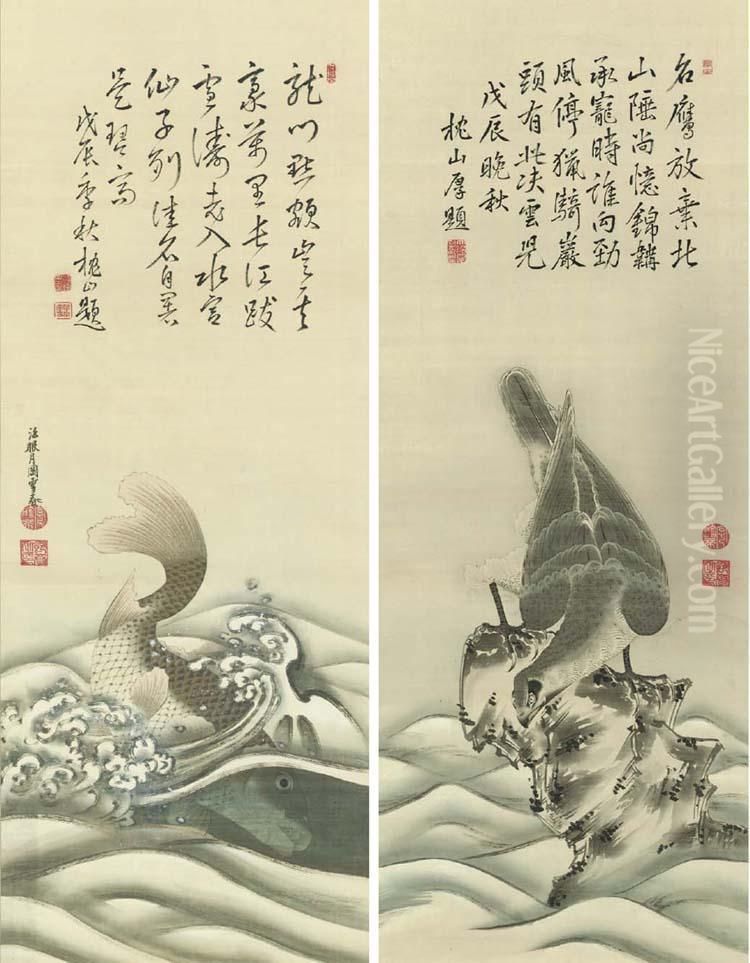 名鷹放棄北
山陲尚憶錦韝
承寵時誰向勁
風停獵騎巖
頭有此决雲児
戊辰晩秋
枕山厚題
龍門點額豈其
豪萬里長江跋
雪濤去入水宮
仙子列佳名自署
是琴高
戊辰季秋枕山題
法眼月岡雪斎
NiceArtGallery.com